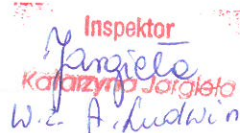 Inspektor
Jargieła
Katarzyna Jargieła
W.z. A. Ludwin